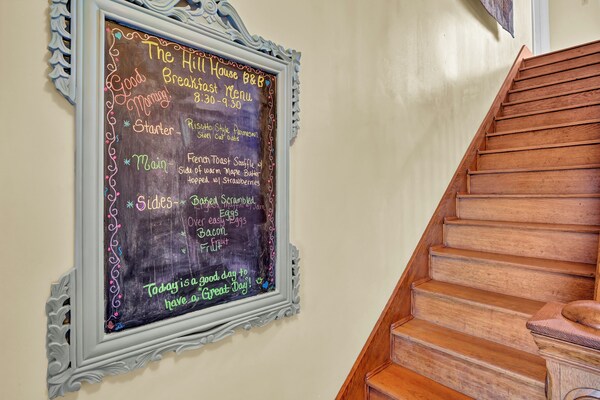 The Hill House B&B
Breakfast Menu
8:30-9:30
Good
Morning!
Starter - Risotto Style Parmesan
Steel Cut Oats
Main - French Toast Souffle w/
Side of warm Maple Butter
topped w/ Strawberries
Sides - Baked Scrambled
Eggs
Over easy Eggs
Bacon
Fruit
Today is a good day to
have a "Great Day!